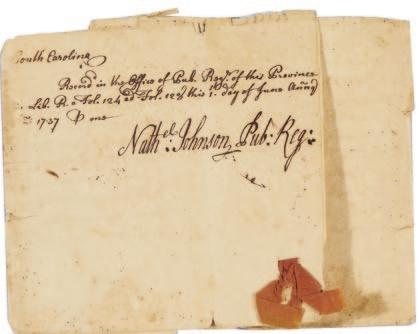 South Carolina
Record in the Office of Pub. Regr. of this Province
Lib. R. a Fol. 124 ad Fol. 129 this 1. day of June
1737 P me
Nathel: Johnson, Pub: Reg:r